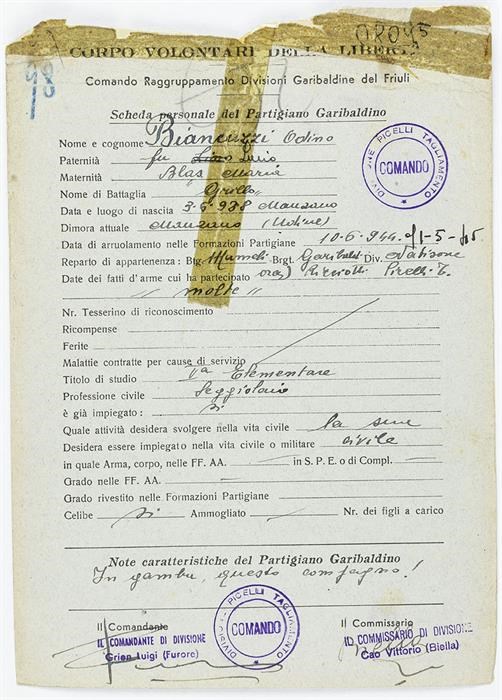 08045
98
CORPO VOLONTARI DELLA LIBERTÀ
Comando Raggruppamento Divisioni Garibaldine del Friuli
Scheda personale del Partigiano Garibaldino
Nome e cognome Biancuzzi Odino
Paternità fu Lucio
Maternità Blas Maria
Nome di Battaglia Grillo
Data e luogo di nascita 3-6-928 Manzano
Dimora attuale Manzano (Udine)
Data di arruolamento nelle Formazioni Partigiane 10-6-944
Reparto di appartenenza: Btg. Mameli Brgt. Garibaldi Div. Natisone
Date dei fatti d'arme cui ha partecipato ora) Picelli-T.
" molte "
Nr. Tesserino di riconoscimento
Ricompense
Ferite
Malattie contratte per cause di servizio
Titolo di studio Va Elementare
Professione civile Seggiolaio
è già impiegato: si
Quale attività desidera svolgere nella vita civile la sua
Desidera essere impiegato nella vita civile o militare civile
in quale Arma, corpo, nelle FF. AA. — in S. P. E. o di Compl. —
Grado nelle FF. AA. —
Grado rivestito nelle Formazioni Partigiane
Celibe si Ammogliato — Nr. dei figli a carico
DIVISIONE PICELLI TAGLIAMENTO
COMANDO
Note caratteristiche del Partigiano Garibaldino
In gamba, questo compagno!
Il Comandante
IL COMANDANTE DI DIVISIONE
Grion Luigi (Furore)
DIVISIONE PICELLI TAGLIAMENTO
COMANDO
Il Commissario
IL COMMISSARIO DI DIVISIONE
Cao Vittorio (Biella)